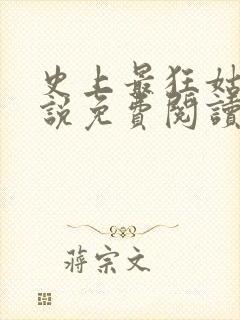 史上最狂姑
說免費閱讀
蔣宗文